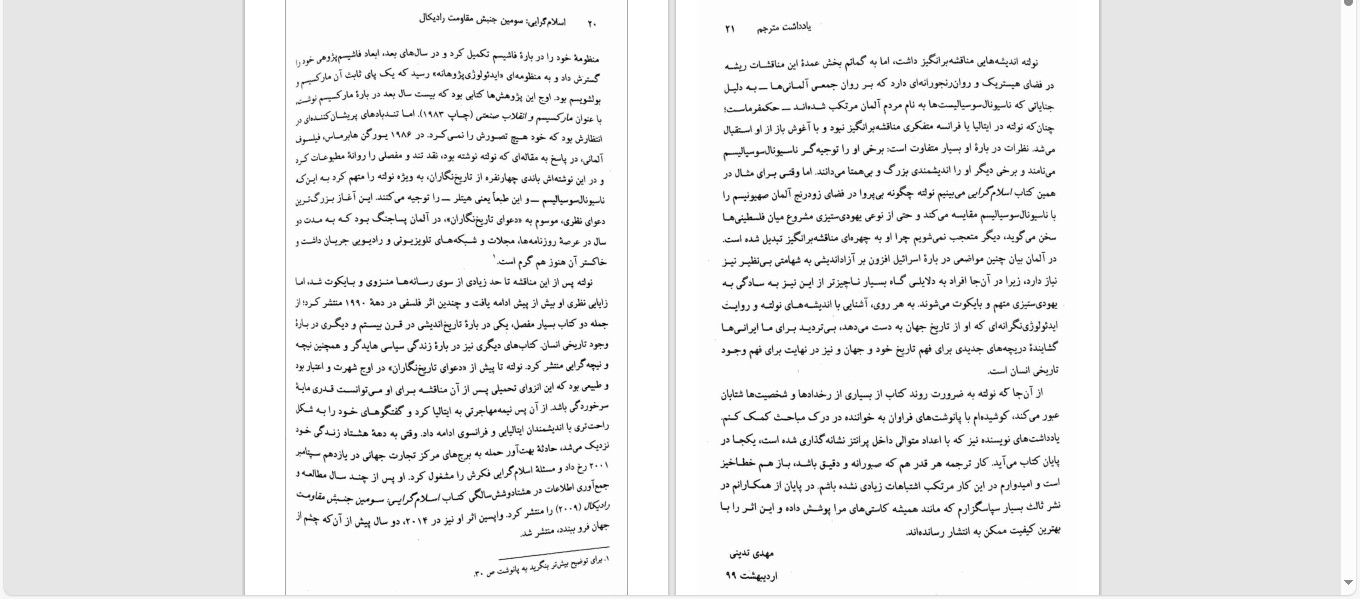 ۲۰ اسلام‌گرایی: سومین جنبش مقاومت رادیکال
منظومهٔ خود را در بارهٔ فاشیسم تکمیل کرد و در سال‌های بعد، ابعاد فاشیسم‌پژوهی خود را
گسترش داد و به منظومه‌ای «ایدئولوژی‌پژوهانه» رسید که یک پای ثابت آن مارکسیسم و
بولشویسم بود. اوج این پژوهش‌ها کتابی بود که بیست سال بعد در بارهٔ مارکسیسم نوشت،
با عنوان مارکسیسم و انقلاب صنعتی (چاپ ۱۹۸۳). اما تندبادهای پریشان‌کننده‌ای در
انتظارش بود که خود هیچ تصورش را نمی‌کرد. در ۱۹۸۶ یورگن هابرماس، فیلسوف
آلمانی، در پاسخ به مقاله‌ای که نولته نوشته بود، نقد تند و مفصلی را روانهٔ مطبوعات کرد
و در این نوشته‌اش باندی چهارنفره از تاریخ‌نگاران، به ویژه نولته را متهم کرد به این‌که
ناسیونال‌سوسیالیسم ــ و این طبعاً یعنی هیتلر ــ را توجیه می‌کنند. این آغاز بزرگ‌ترین
دعوای نظری، موسوم به «دعوای تاریخ‌نگاران»، در آلمان پساجنگ بود که به مدت دو
سال در عرصهٔ روزنامه‌ها، مجلات و شبکه‌های تلویزیونی و رادیویی جریان داشت و
خاکستر آن هنوز هم گرم است.۱
نولته پس از این مناقشه تا حد زیادی از سوی رسانه‌ها منزوی و بایکوت شد، اما
زایایی نظری او بیش از پیش ادامه یافت و چندین اثر فلسفی در دههٔ ۱۹۹۰ منتشر کرد؛ از
جمله دو کتاب بسیار مفصل، یکی در بارهٔ تاریخ‌اندیشی در قرن بیستم و دیگری در بارهٔ
وجود تاریخی انسان. کتاب‌های دیگری نیز در بارهٔ زندگی سیاسی هایدگر و همچنین نیچه
و نیچه‌گرایی منتشر کرد. نولته تا پیش از «دعوای تاریخ‌نگاران» در اوج شهرت و اعتبار بود
و طبیعی بود که این انزوای تحمیلی پس از آن مناقشه برای او می‌توانست قدری مایهٔ
سرخوردگی باشد. از آن پس نیمه‌مهاجرتی به ایتالیا کرد و گفتگوهای خود را به شکل
راحت‌تری با اندیشمندان ایتالیایی و فرانسوی ادامه داد. وقتی به دههٔ هشتاد زندگی خود
نزدیک می‌شد، حادثهٔ بهت‌آور حمله به برج‌های مرکز تجارت جهانی در یازدهم سپتامبر
۲۰۰۱ رخ داد و مسئلهٔ اسلام‌گرایی فکرش را مشغول کرد. او پس از چند سال مطالعه و
جمع‌آوری اطلاعات در هشتادوشش‌سالگی کتاب اسلام‌گرایی: سومین جنبش مقاومت
رادیکال (۲۰۰۹) را منتشر کرد. واپسین اثر او نیز در ۲۰۱۴، دو سال پیش از آن‌که چشم از
جهان فرو ببندد، منتشر شد.
۱. برای توضیح بیش‌تر بنگرید به پانوشت ص ۳۰.
یادداشت مترجم ۲۱
نولته اندیشه‌هایی مناقشه‌برانگیز داشت، اما به گمانم بخش عمدهٔ این مناقشات ریشه
در فضای هیستریک و روان‌رنجورانه‌ای دارد که بر روان جمعی آلمانی‌ها ــ به دلیل
جنایاتی که ناسیونال‌سوسیالیست‌ها به نام مردم آلمان مرتکب شده‌اند ــ حکمفرماست؛
چنان‌که نولته در ایتالیا یا فرانسه متفکری مناقشه‌برانگیز نبود و با آغوش باز از او استقبال
می‌شد. نظرات در بارهٔ او بسیار متفاوت است: برخی او را توجیه‌گر ناسیونال‌سوسیالیسم
می‌نامند و برخی دیگر او را اندیشمندی بزرگ و بی‌همتا می‌دانند. اما وقتی برای مثال در
همین کتاب اسلام‌گرایی می‌بینیم نولته چگونه بی‌پروا در فضای زودرنج آلمان صهیونیسم را
با ناسیونال‌سوسیالیسم مقایسه می‌کند و حتی از نوعی یهودی‌ستیزی مشروع میان فلسطینی‌ها
سخن می‌گوید، دیگر متعجب نمی‌شویم چرا او به چهره‌ای مناقشه‌برانگیز تبدیل شده است.
در آلمان بیان چنین مواضعی در بارهٔ اسرائیل افزون بر آزاداندیشی به شهامتی بی‌نظیر نیز
نیاز دارد، زیرا در آن‌جا افراد به دلایلی گاه بسیار ناچیزتر از این نیز به سادگی به
یهودی‌ستیزی متهم و بایکوت می‌شوند. به هر روی، آشنایی با اندیشه‌های نولته و روایت
ایدئولوژی‌نگرانه‌ای که او از تاریخ جهان به دست می‌دهد، بی‌تردید برای ما ایرانی‌ها
گشایندهٔ دریچه‌های جدیدی برای فهم تاریخ خود و جهان و نیز در نهایت برای فهم وجود
تاریخی انسان است.
از آن‌جا که نولته به ضرورت روند کتاب از بسیاری از رخدادها و شخصیت‌ها شتابان
عبور می‌کند، کوشیده‌ام با پانوشت‌های فراوان به خواننده در درک مباحث کمک کنم.
یادداشت‌های نویسنده نیز که با اعداد متوالی داخل پرانتز نشانه‌گذاری شده است، یکجا در
پایان کتاب می‌آید. کار ترجمه هر قدر هم که صبورانه و دقیق باشد، باز هم خطاخیز
است و امیدوارم در این کار مرتکب اشتباهات زیادی نشده باشم. در پایان از همکارانم در
نشر ثالث بسیار سپاسگزارم که مانند همیشه کاستی‌های مرا پوشش داده و این اثر را با
بهترین کیفیت ممکن به انتشار رسانده‌اند.
مهدی تدینی
اردیبهشت ۹۹